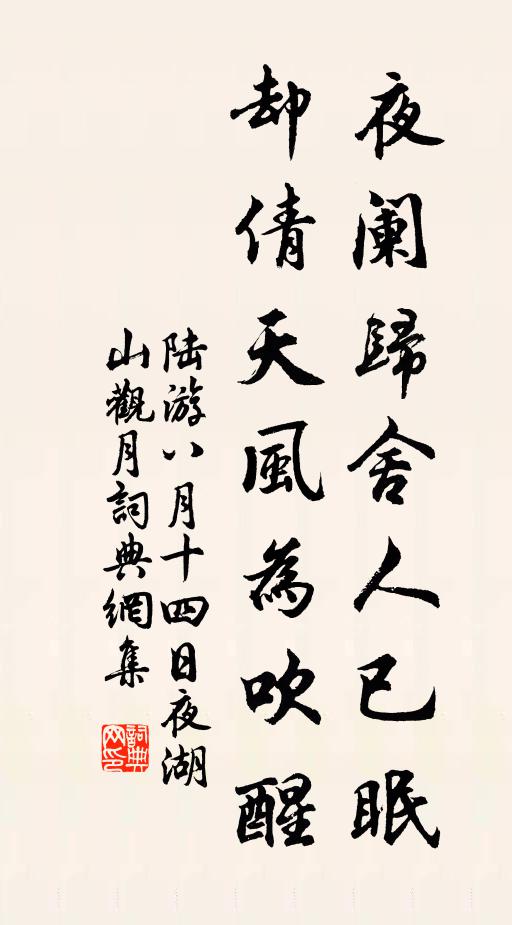 夜阑歸舍人已眠
却倩天風為吹醒
陆游八月十四日夜湖
山觀月詞典網集
詞典
网印